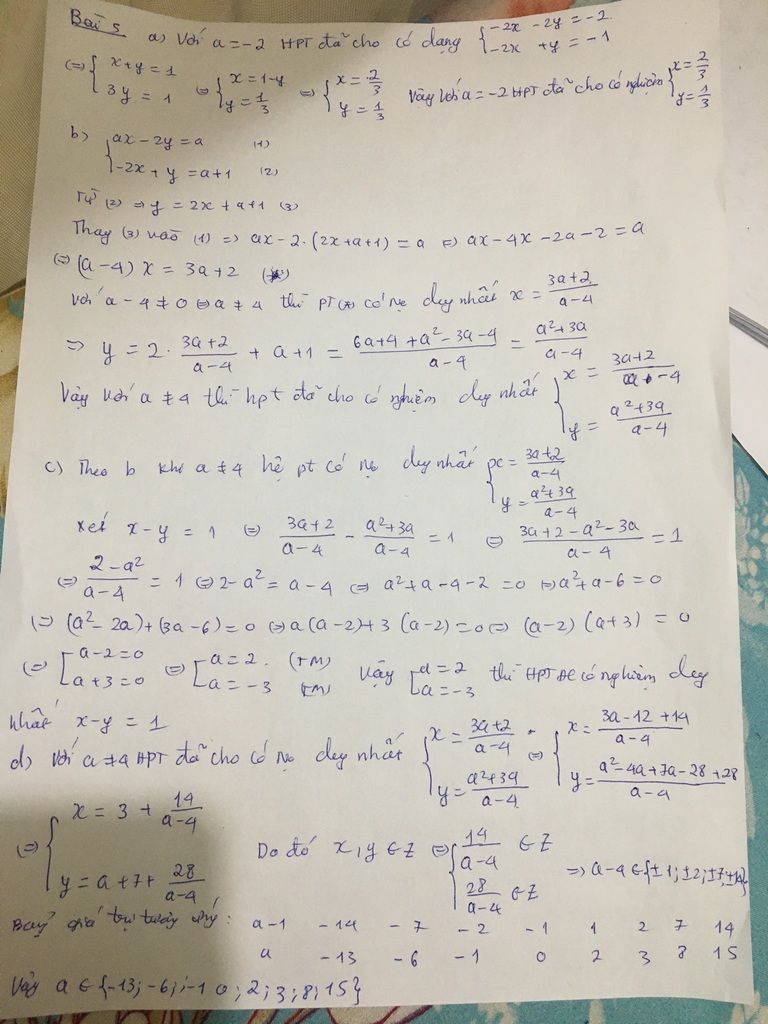 Bài 5 a) Với a = -2 HPT đã cho có dạng { -2x - 2y = -2. -2x + y = -1
(=) { x+y = 1 3y = 1 (=) { x = 1-y y = 1/3 (=) { x = 2/3 y = 1/3 Vậy với a = -2 HPT đã cho có nghiệm { x = 2/3 y = 1/3
b) { ax - 2y = a (1) -2x + y = a+1 (2)
Từ (2) => y = 2x + a+1 (3)
Thay (3) vào (1) => ax - 2.(2x+a+1) = a (=) ax - 4x - 2a - 2 = a
(=) (a-4) x = 3a+2 (*)
Với a - 4 ≠ 0 (=) a ≠ 4 thì PT(*) có no duy nhất x = (3a+2)/(a-4)
=> y = 2. (3a+2)/(a-4) + a+1 = (6a+4+a²-3a-4)/(a-4) = (a²+3a)/(a-4)
Vậy với a ≠ 4 thì hpt đã cho có nghiệm duy nhất { x = (3a+2)/(a-4) y = (a²+3a)/(a-4)
c) Theo b khi a ≠ 4 hệ pt có no duy nhất { x = (3a+2)/(a-4) y = (a²+3a)/(a-4)
Xét x-y = 1 (=) (3a+2)/(a-4) - (a²+3a)/(a-4) = 1 (=) (3a+2-a²-3a)/(a-4) = 1
(=) (2-a²)/(a-4) = 1 (=) 2-a² = a-4 (=) a²+a-4-2 = 0 (=) a²+a-6 = 0
(=) (a²-2a)+(3a-6) = 0 (=) a(a-2)+3(a-2) = 0 (=) (a-2)(a+3) = 0
(=) [ a-2=0 a+3=0 (=) [ a = 2. (TM) a = -3 (TM) Vậy [ a = 2 a = -3 thì HPT có nghiệm duy
nhất x-y = 1
d) Với a ≠ 4 HPT đã cho có no duy nhất { x = (3a+2)/(a-4) y = (a²+3a)/(a-4) (=) { x = (3a-12+14)/(a-4) y = (a²-4a+7a-28+28)/(a-4)
(=) { x = 3 + 14/(a-4) y = a+7+ 28/(a-4) Do đó x, y ∈ Z (=) { 14/(a-4) ∈ Z 28/(a-4) ∈ Z => a-4 ∈ {±1; ±2; ±7; ±14}
Bảng giá trị tương ứng: a-1 -14 -7 -2 -1 1 2 7 14
a -13 -6 -1 0 2 3 8 15
Vậy a ∈ {-13; -6; -1 0; 2; 3; 8; 15}